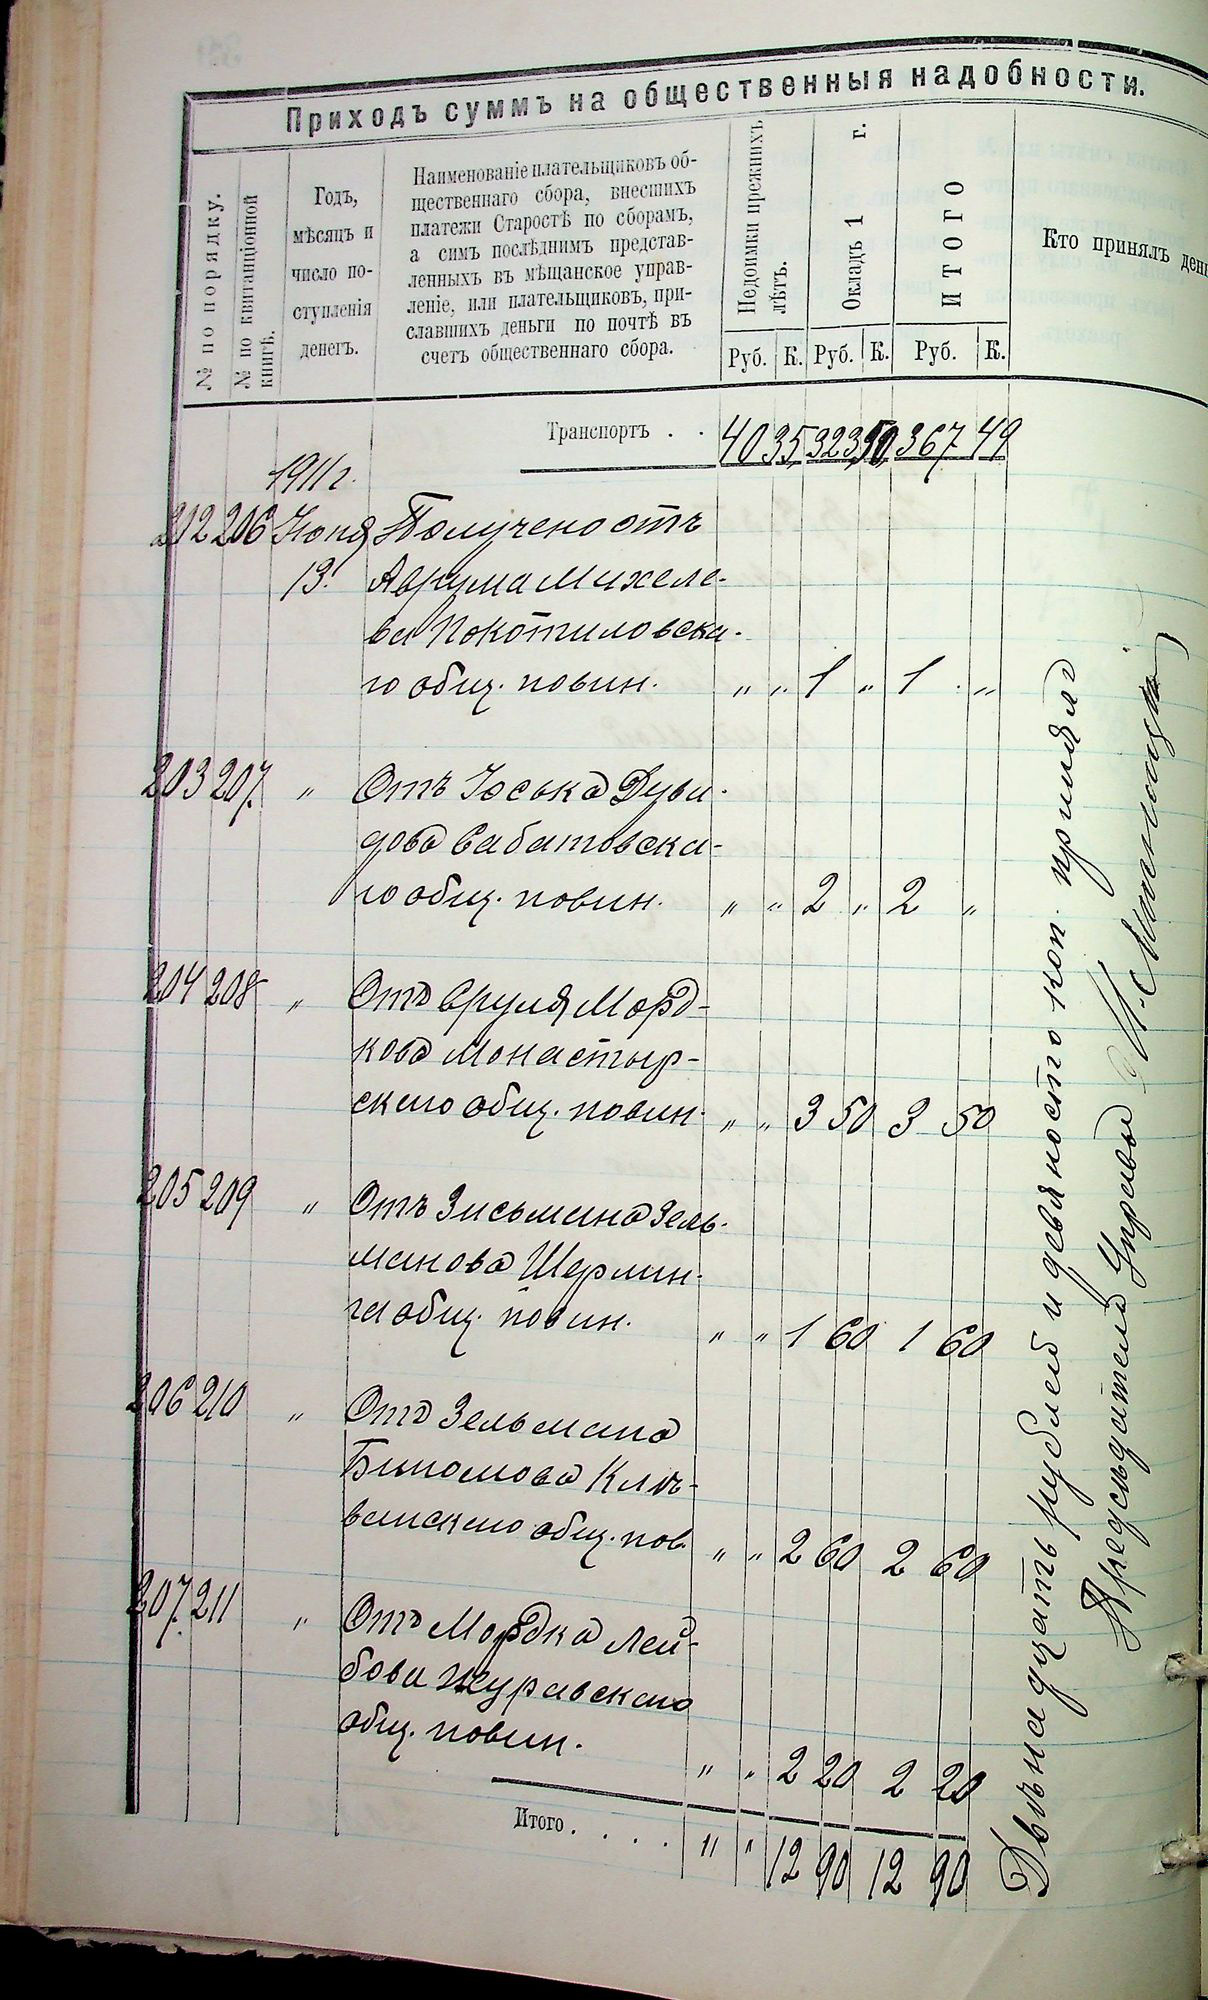 Приходъ суммъ на общественныя надобности.
№ по порядку.
№ по квитанціонной
книгѣ.
Годъ,
мѣсяцъ и
число по-
ступленія
денегъ.
Наименованіе плательщиковъ об-
щественнаго сбора, внесшихъ
платежи Старостѣ по сборамъ,
а симъ послѣднимъ представ-
ленныхъ въ мѣщанское управ-
леніе, или плательщиковъ, при-
славшихъ деньги по почтѣ въ
счетъ общественнаго сбора.
Недоимки прежнихъ
лѣтъ.
Окладъ 1 г.
ИТОГО
Кто принялъ ден
Руб. К. Руб. К. Руб. К.
Транспортъ . . 40 35 323 367 49
1911 г.
202 206 Іюня Получено отъ
13. Аврума Михеле-
ва Покотиловска-
го общ. повин. " " 1 " 1 . "
203 207. " Отъ Іоська Дуви-
дова Сабатовска-
го общ. повин. " " 2 " 2 "
204 208 " Отъ Сруля Морд-
кова Монастыр-
скаго общ. повин. " " 3 50 3 50
205 209 " Отъ Зисьмана Зель-
манова Шерлин-
га общ. повин. " " 1 60 1 60
206 210 " Отъ Зельмана
ванскаго общ. пов. " " 2 60 2 60
207. 211 " Отъ Мордка Лей-
бова Журавскаго
общ. повин. " " 2 20 2 20
Итого . . . . " " 12 90 12 90
Двѣнадцать рублей и девяносто коп. принялъ
Предсѣдатель Управы